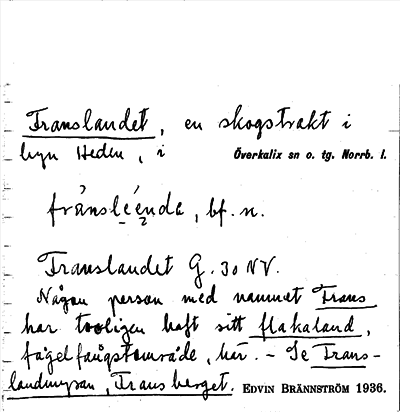 Franslandet, en skogstrakt i
byn Heden, i Överkalix sn o. tg. Norrb. l.
fránsléénda, bf. n.
Franslandet G. 30 NV.
Någon person med namnet Frans
har troligen haft sitt flakaland,
fågelfångstområde, här. – Se Frans-
landmyran, Fransberget. EDVIN BRÄNNSTRÖM 1936.